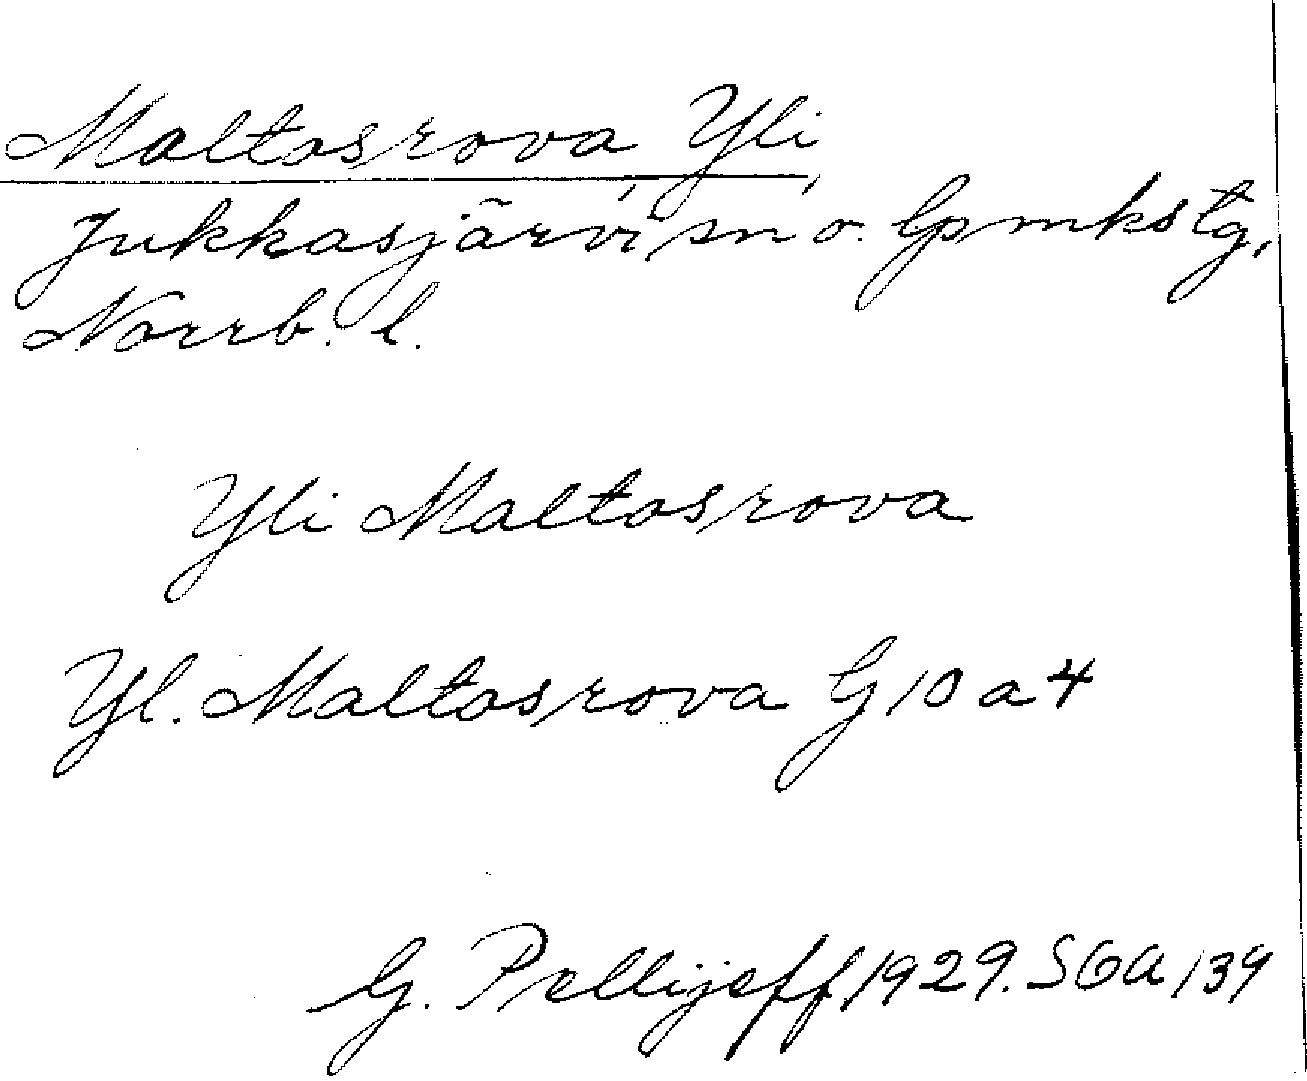 Maltosrova, Yli,
Jukkasjärvi sn o. lpmkstg,
Norrb. l.
Yli Maltosrova
Yl. Maltosrova G10a4
G. Pellijeff 1929. SOA 139